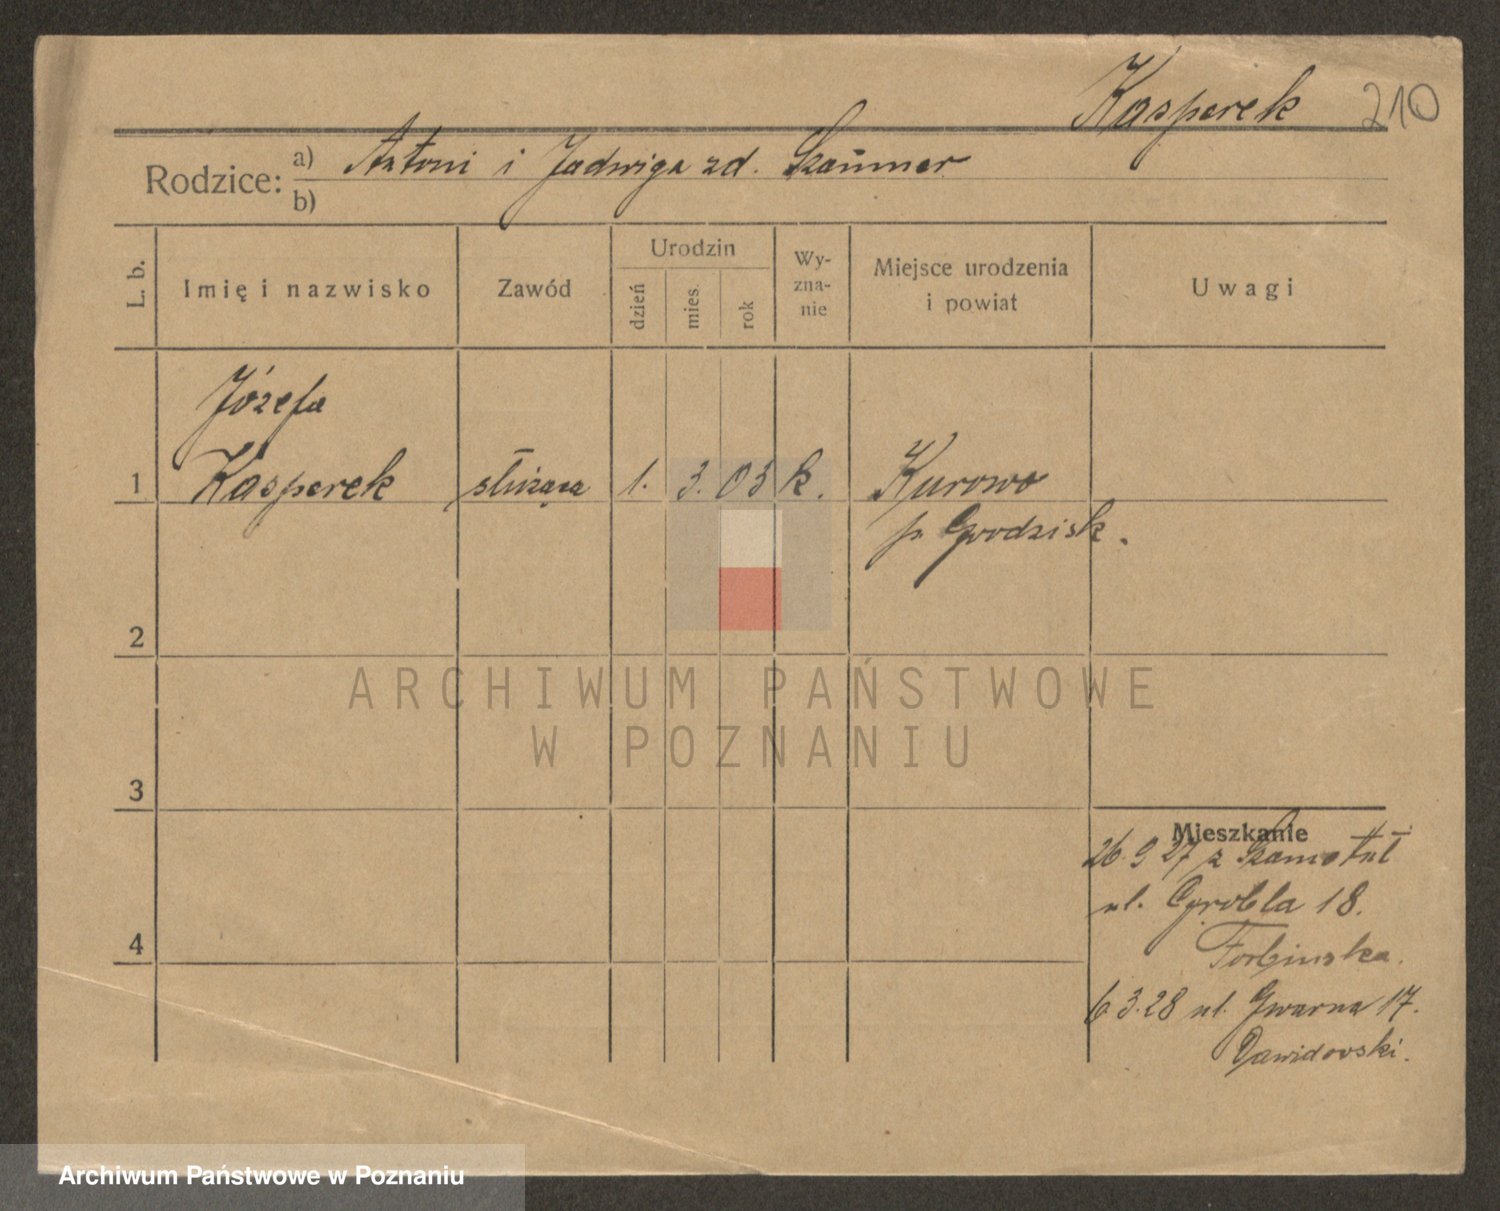 Kasperek 210
Rodzice: a) Antoni i Jadwiga zd.
b)
L. b.
Imię i nazwisko
Zawód
Urodzin
dzień
mies.
rok
Wy-
zna-
nie
Miejsce urodzenia
i powiat
Uwagi
Józefa
1 Kasperek służąca 1. 3. 03 k. Kurowo
p. Grodzisk.
2
ARCHIWUM PAŃSTWOWE
W POZNANIU
3
Mieszkanie
26. 9 27 z Szamotuł
ul. Grobla 18.
4
Torbinska.
6 3. 28 ul. Gwarna 17.
Dawidovski.
Archiwum Państwowe w Poznaniu